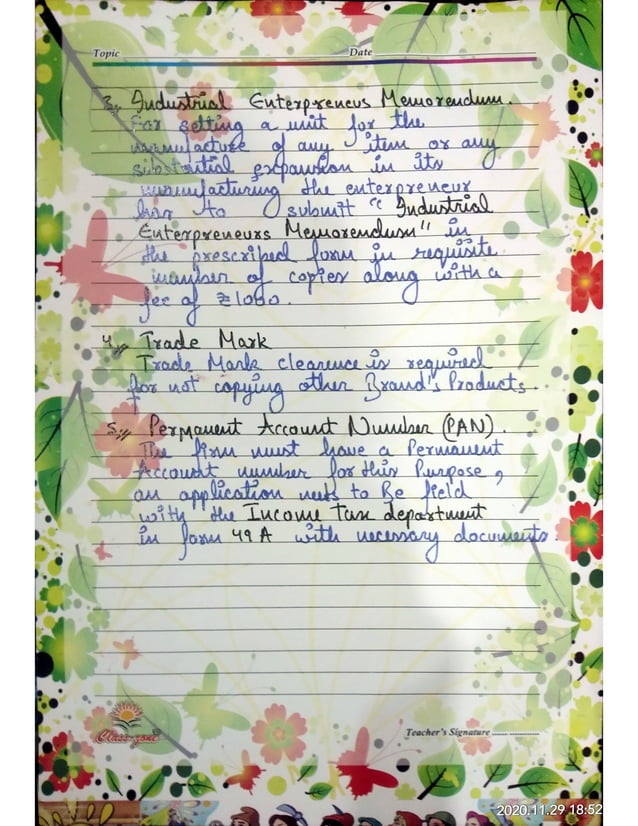 Topic Date
3. Industrial Enterpreneus Memorendum.
For setting a unit for the
manufacture of any item or any
substantial expansion in its
manufacturing the enterpreneur
has to submitt "Industrial
Enterpreneurs Memorendum" in
the prescriped form in requisite
number of copies along with a
fee of ₹1000.
4. Trade Mark
Trade Mark clearence is required
for not copying other Brand's Products.
5. Permanent Account Number (PAN).
The firm must have a Permanent
Account number for this Purpose,
an application needs to Be field
with the Income Tax department
in form 49A with necessary documents.
Teacher's Signature
Class-zone
2020.11.29 18:52